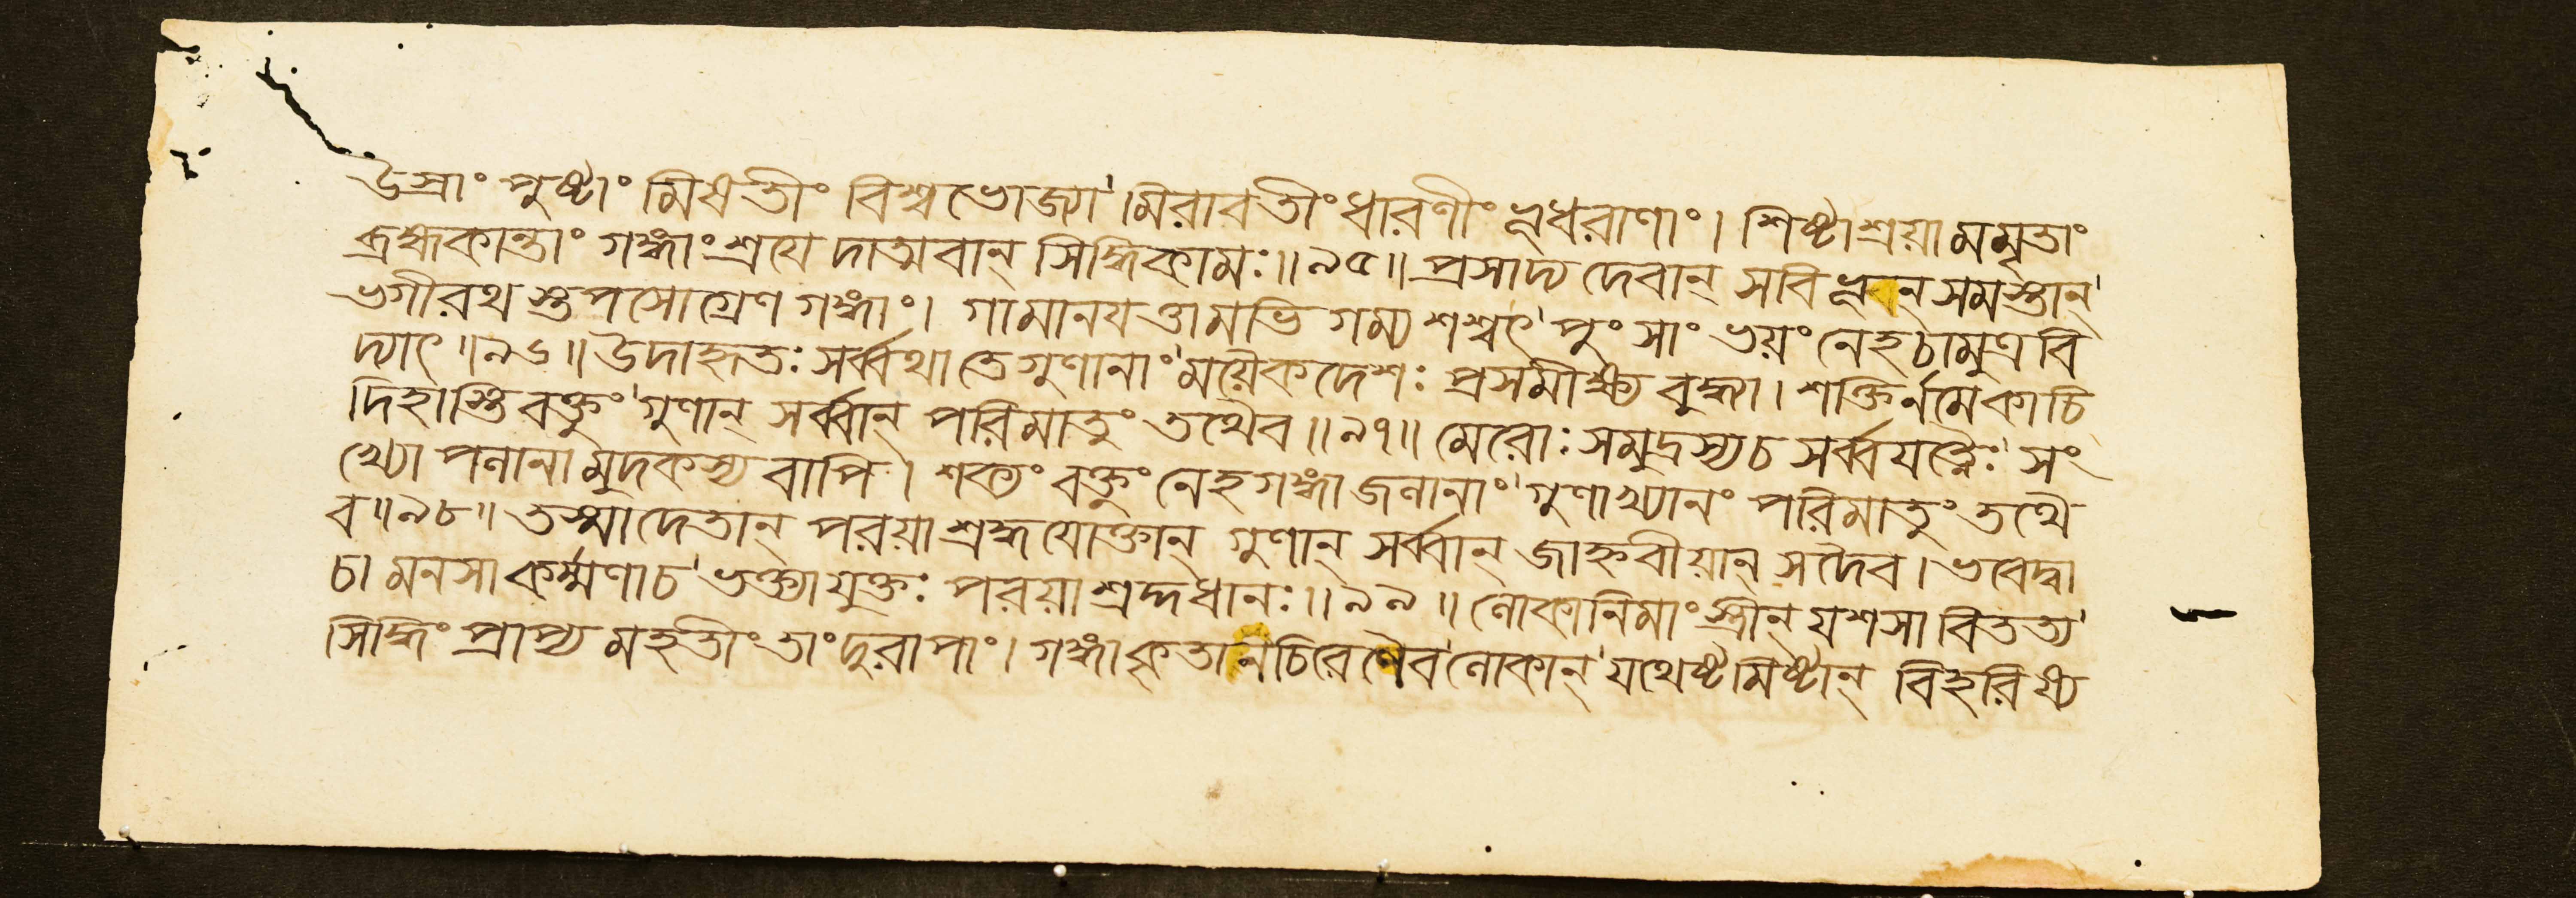 উস্রাং পুষ্টাং মিষতীং বিশ্বভোজ্যা' মিরাবতীং ধারণীং ভূধরাণাং। শিষ্টাশ্রয়ামমৃতাং
ব্রহ্মকান্তাং গঙ্গাং শ্রয়ে দাত্মবান্ সিদ্ধিকামঃ॥৯৫॥ প্রসাদ্য দেবান্ সবিভূন্ সমস্তান্'
ভগীরথ স্তপসোগ্রেণ গঙ্গাং। গামানয ত্তামভি গম্য শশ্বৎ' পুংসাং ভয়ং নেহ চামুত্র বি
দ্যাৎ॥৯৬॥ উদাহৃতঃ সর্ব্বথা তে গুণানাং' ময়ৈকদেশঃ প্রসমীক্ষ্য বুদ্ধ্যা। শক্তির্নমেকাচি
দিহাস্তি বক্তুং' গুণান্ সর্ব্বান্ পরিমাতুং তথৈব॥৯৭॥ মেরোঃ সমুদ্রস্য চ সর্ব্বযত্নৈঃ' সং
খ্যো পলানামুদকস্য বাপি। শক্যং বক্তুং নেহ গঙ্গা জলানাং' গুণাখ্যানং পরিমাতুং তথৈ
ব॥৯৮॥ তস্মাদেতান্ পরয়া শ্রদ্ধযোক্তান্ গুণান্ সর্ব্বান্ জাহ্নবীয়ান্ সদৈব। ভবেদ্বা
চা মনসা কর্ম্মণা চ' ভক্ত্যা যুক্তঃ পরয়া শ্রদ্দধানঃ॥৯৯॥ লোকানিমাং স্ত্রীন্ যশসা বিতত্য'
সিদ্ধিং প্রাপ্য মহতীং তাং দুরাপাং। গঙ্গাকৃতানচিরেণৈব' লোকান্' যথেষ্টমিষ্টান্ বিহরিষ্য